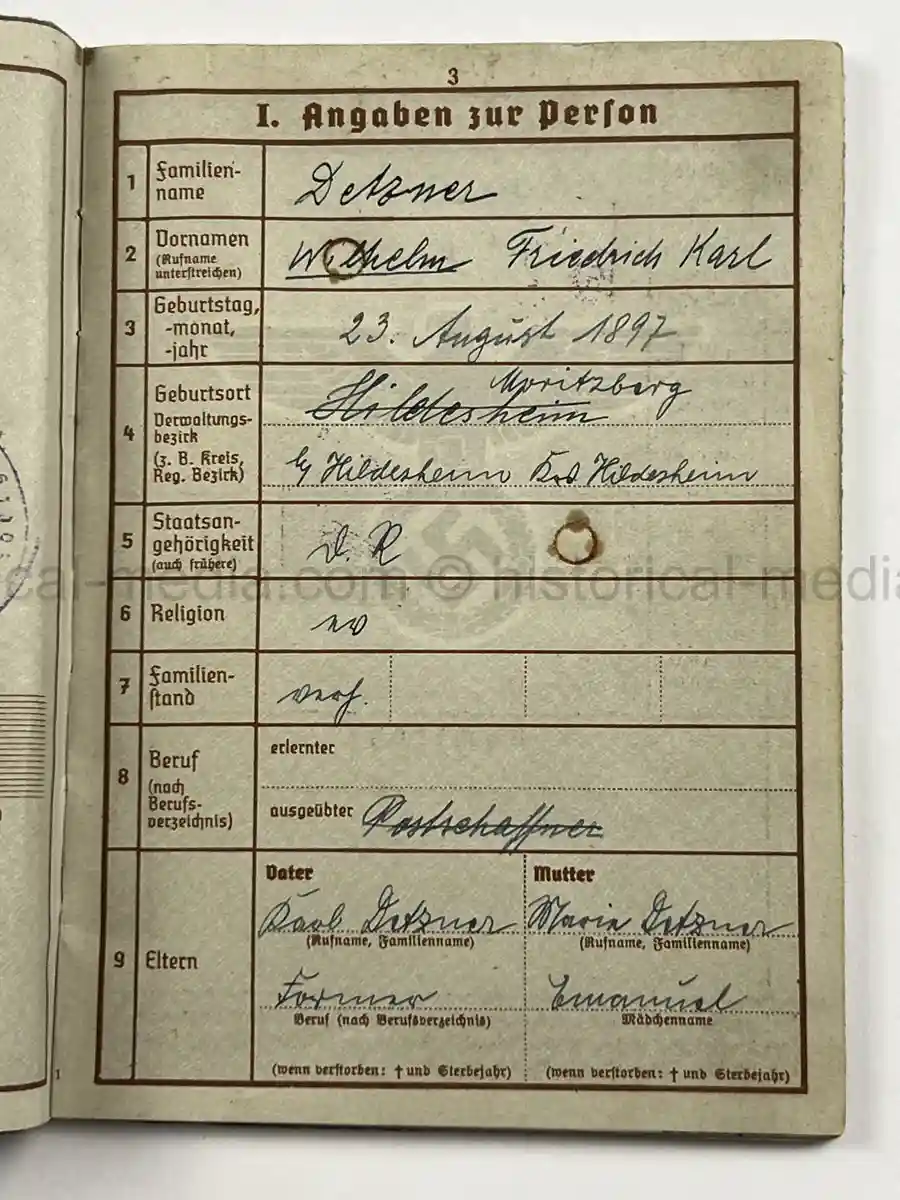 3
I. Angaben zur Person
1 Familien-
name
Detzner
2 Vornamen
(Rufname
unterstreichen)
Wilhelm Friedrich Karl
3 Geburtstag,
-monat,
-jahr
23. August 1897
4 Geburtsort
Verwaltungs-
bezirk
(z. B. Kreis,
Reg. Bezirk)
Moritzberg
Hildesheim
b/ Hildesheim Hildesheim
5 Staatsan-
gehörigkeit
(auch frühere)
D. R
cal-media.com © historical-media
6 Religion
ev
7 Familien-
stand
verh.
8 Beruf
(nach
Berufs-
verzeichnis)
erlernter
ausgeübter Postschaffner
9 Eltern
Vater
Karl Detzner
(Rufname, Familienname)
Former
Beruf (nach Berufsverzeichnis)
(wenn verstorben: † und Sterbejahr)
Mutter
Marie Detzner
(Rufname, Familienname)
Emanuel
Mädchenname
(wenn verstorben: † und Sterbejahr)
1